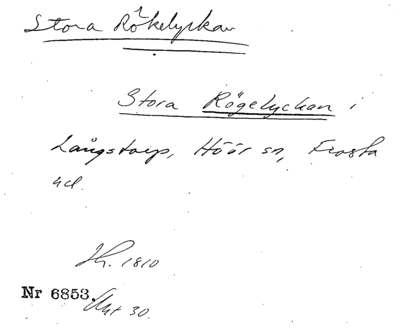 Stora Rökelyckan
Stora Rögelyckan i
Långstorp, Höör sn, Frosta
hd.
Sk. 1810
Nr 6853. Akt 30.